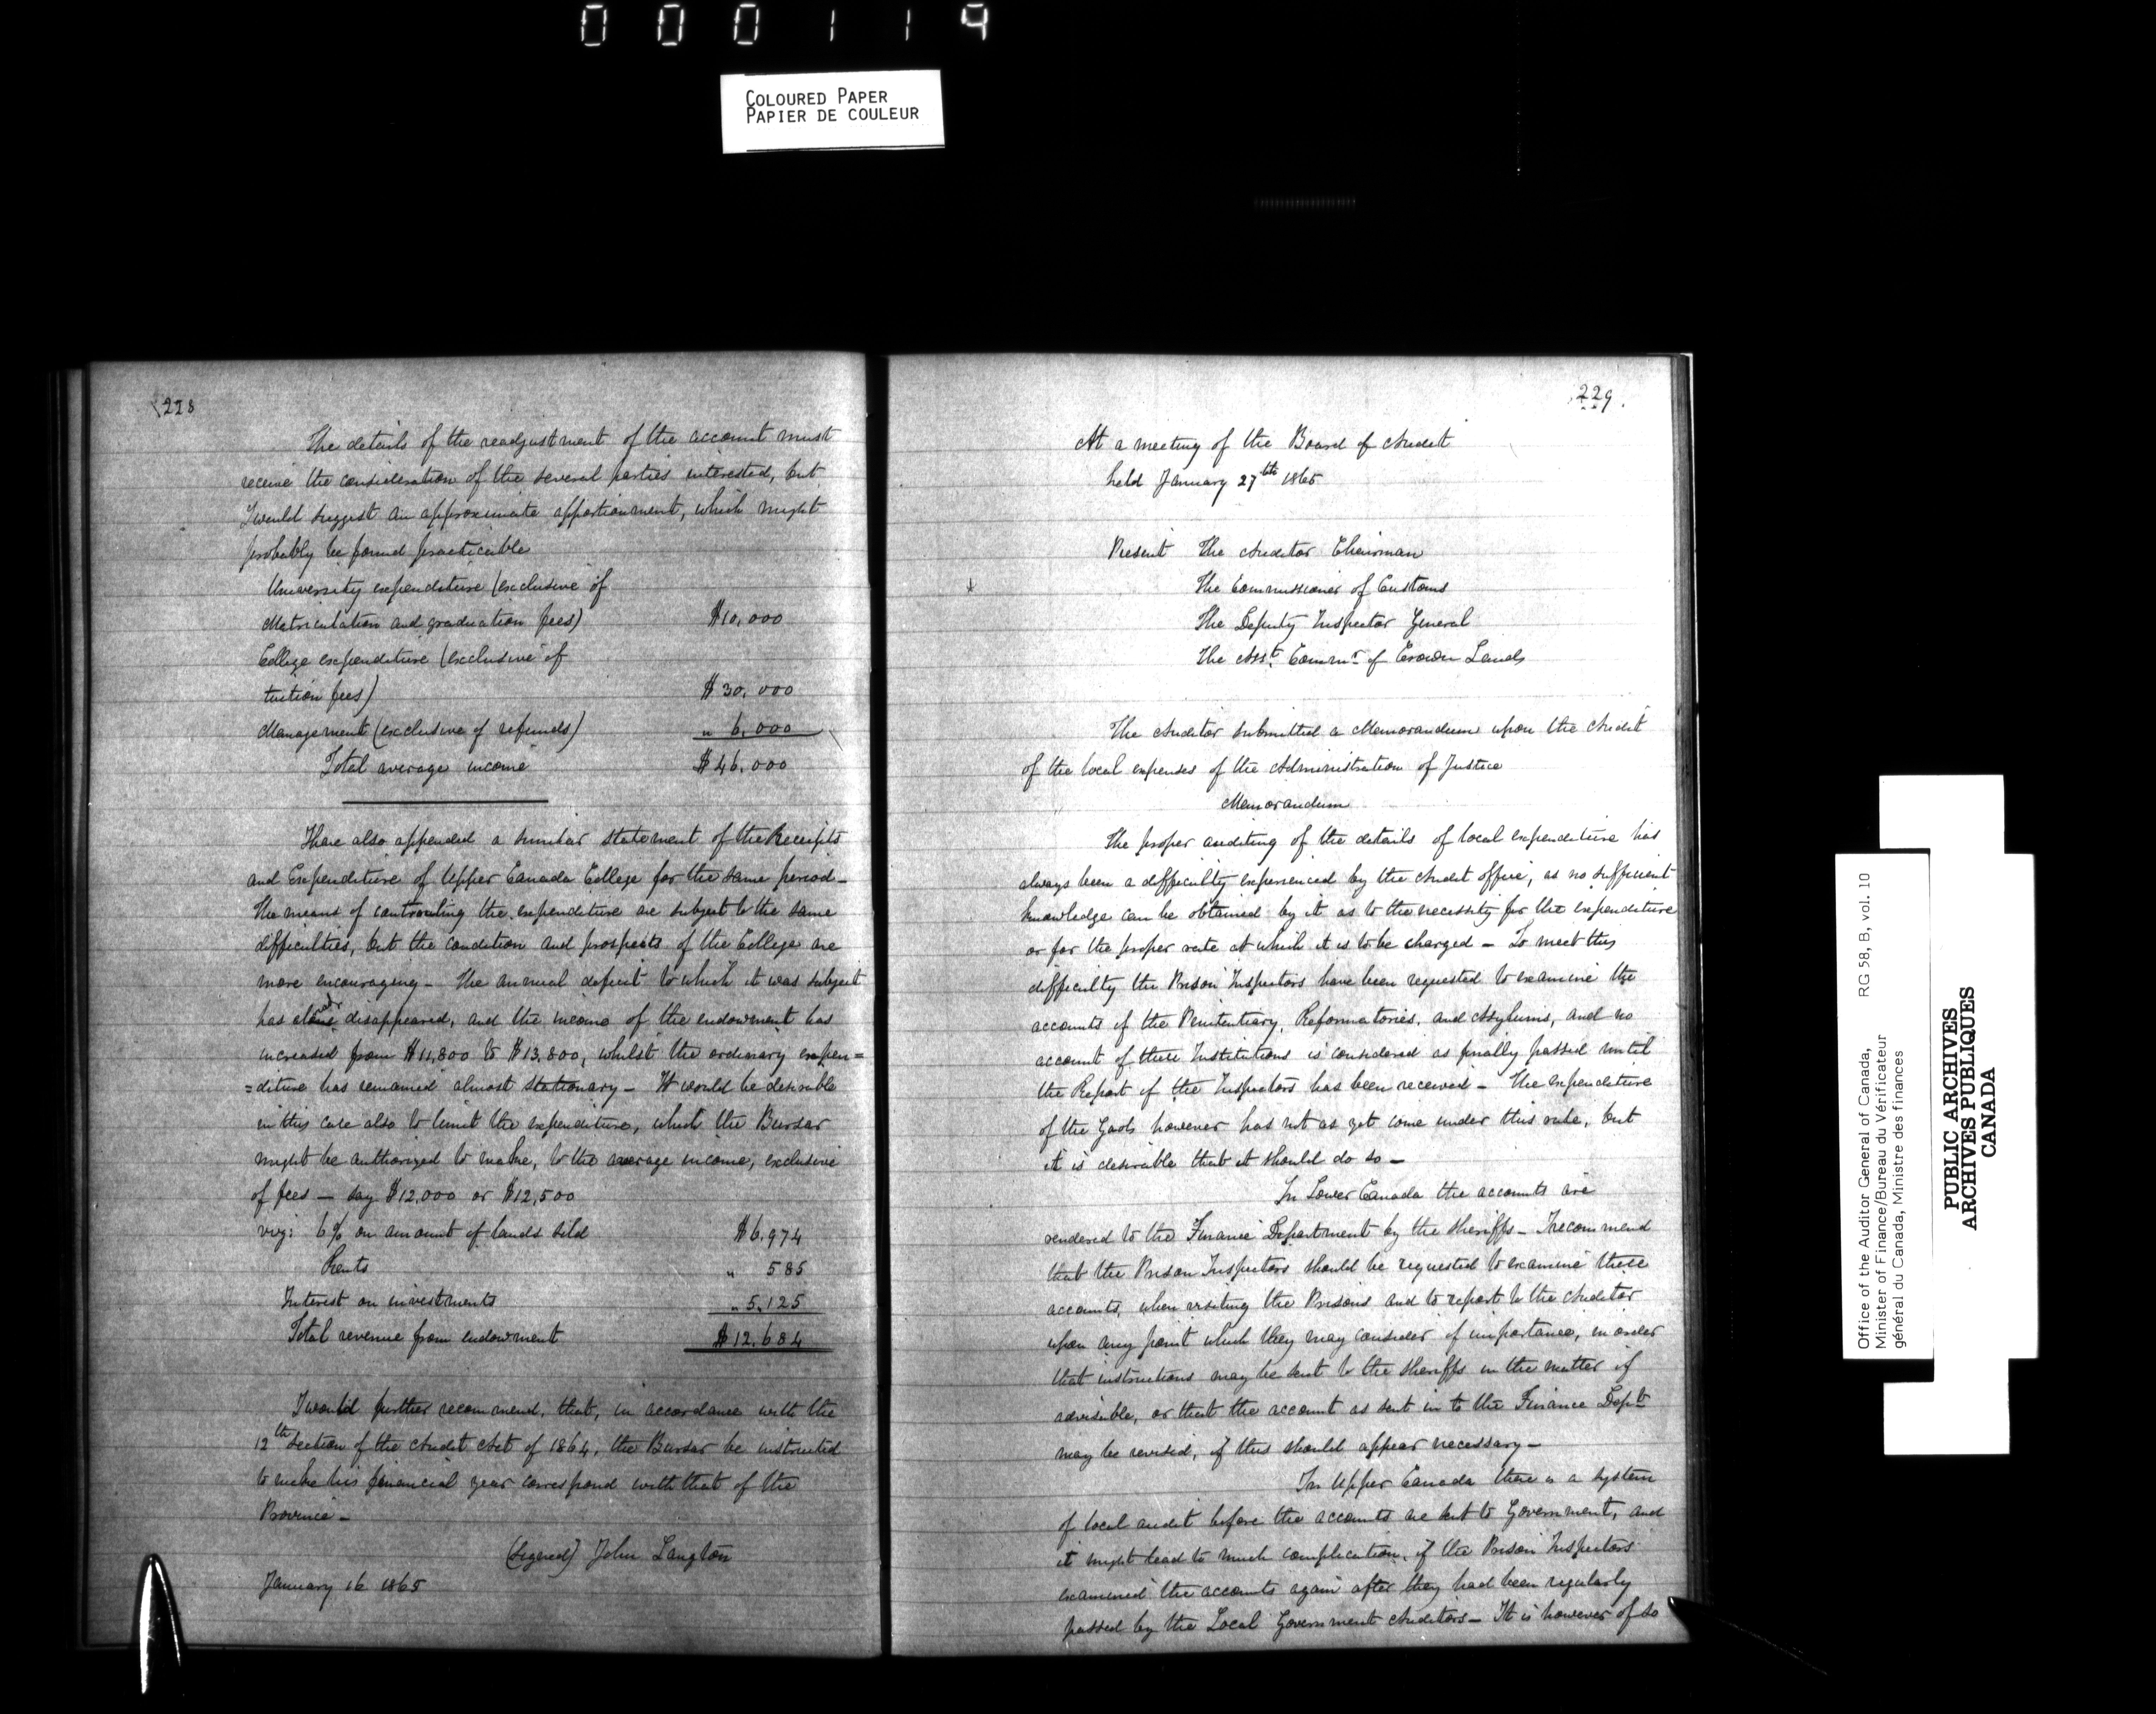 000119
COLOURED PAPER
PAPIER DE COULEUR
228
The details of the readjustment of the account must
receive the consideration of the several parties interested, but
I would suggest an approximate apportionment, which might
probably be found practicable
University expenditure (exclusive of
Matriculation and graduation fees) $10,000
College expenditure (exclusive of
tuition fees) $30,000
Management (exclusive of refunds) " 6,000
Total average income $46,000
I have also appended a similar statement of the Receipts
and Expenditure of Upper Canada College for the same period –
The means of controuling the expenditure are subject to the same
difficulties, but the condition and prospects of the College are
more encouraging – The annual deficit to which it was subject
has disappeared, and the income of the endowment has
increased from $11,800 to $13,800, whilst the ordinary expen=
=diture has remained almost stationary – It would be desirable
in this case also to limit the expenditure, which the Bursar
might be authorized to make, to the average income, exclusive
of fees – say $12,000 or $12,500
viz: 6% on amount of lands sold $6,974
Rents " 585
Interest on investments " 5,125
Total revenue from endowment $12,684
I would further recommend, that, in accordance with the
12th Section of the Audit Act of 1864, the Bursar be instructed
to make his financial year correspond with that of the
Province –
(Signed) John Langton
January 16 1865
229.
At a meeting of the Board of Audit
held January 27th 1865
Present The Auditor Chairman
The Commissioner of Customs
The Deputy Inspector General
The Asst. Commr. of Crown Lands
The Auditor submitted a Memorandum upon the Audit
of the local expenses of the Administration of Justice
Memorandum
The proper auditing of the details of local expenditure has
always been a difficulty experienced by the Audit office, as no sufficient
knowledge can be obtained by it as to the necessity for the expenditure
or for the proper rate at which it is to be charged – To meet this
difficulty the Prison Inspectors have been requested to examine the
accounts of the Penitentiary, Reformatories, and Asylums, and no
account of these Institutions is considered as finally passed until
the Report of the Inspectors has been received – The expenditure
of the Gaols however has not as yet come under this rule, but
it is desirable that it should do so –
In Lower Canada the accounts are
rendered to the Finance Department by the Sheriffs – I recommend
that the Prison Inspectors should be requested to examine these
accounts, when visiting the Prisons and to report to the Auditor
upon any point which they may consider of importance, in order
that instructions may be sent to the Sheriffs in the matter if
advisable, or that the account as sent in to the Finance Dept
may be revised, if this should appear necessary –
In Upper Canada there is a system
of local audit before the accounts are sent to Government, and
it might lead to much complication, if the Prison Inspectors
examined the accounts again after they had been regularly
passed by the Local Government Auditors – It is however of so
Office of the Auditor General of Canada, RG 58, B, vol. 10
Minister of Finance/Bureau du Vérificateur
général du Canada, Ministre des finances
PUBLIC ARCHIVES
ARCHIVES PUBLIQUES
CANADA